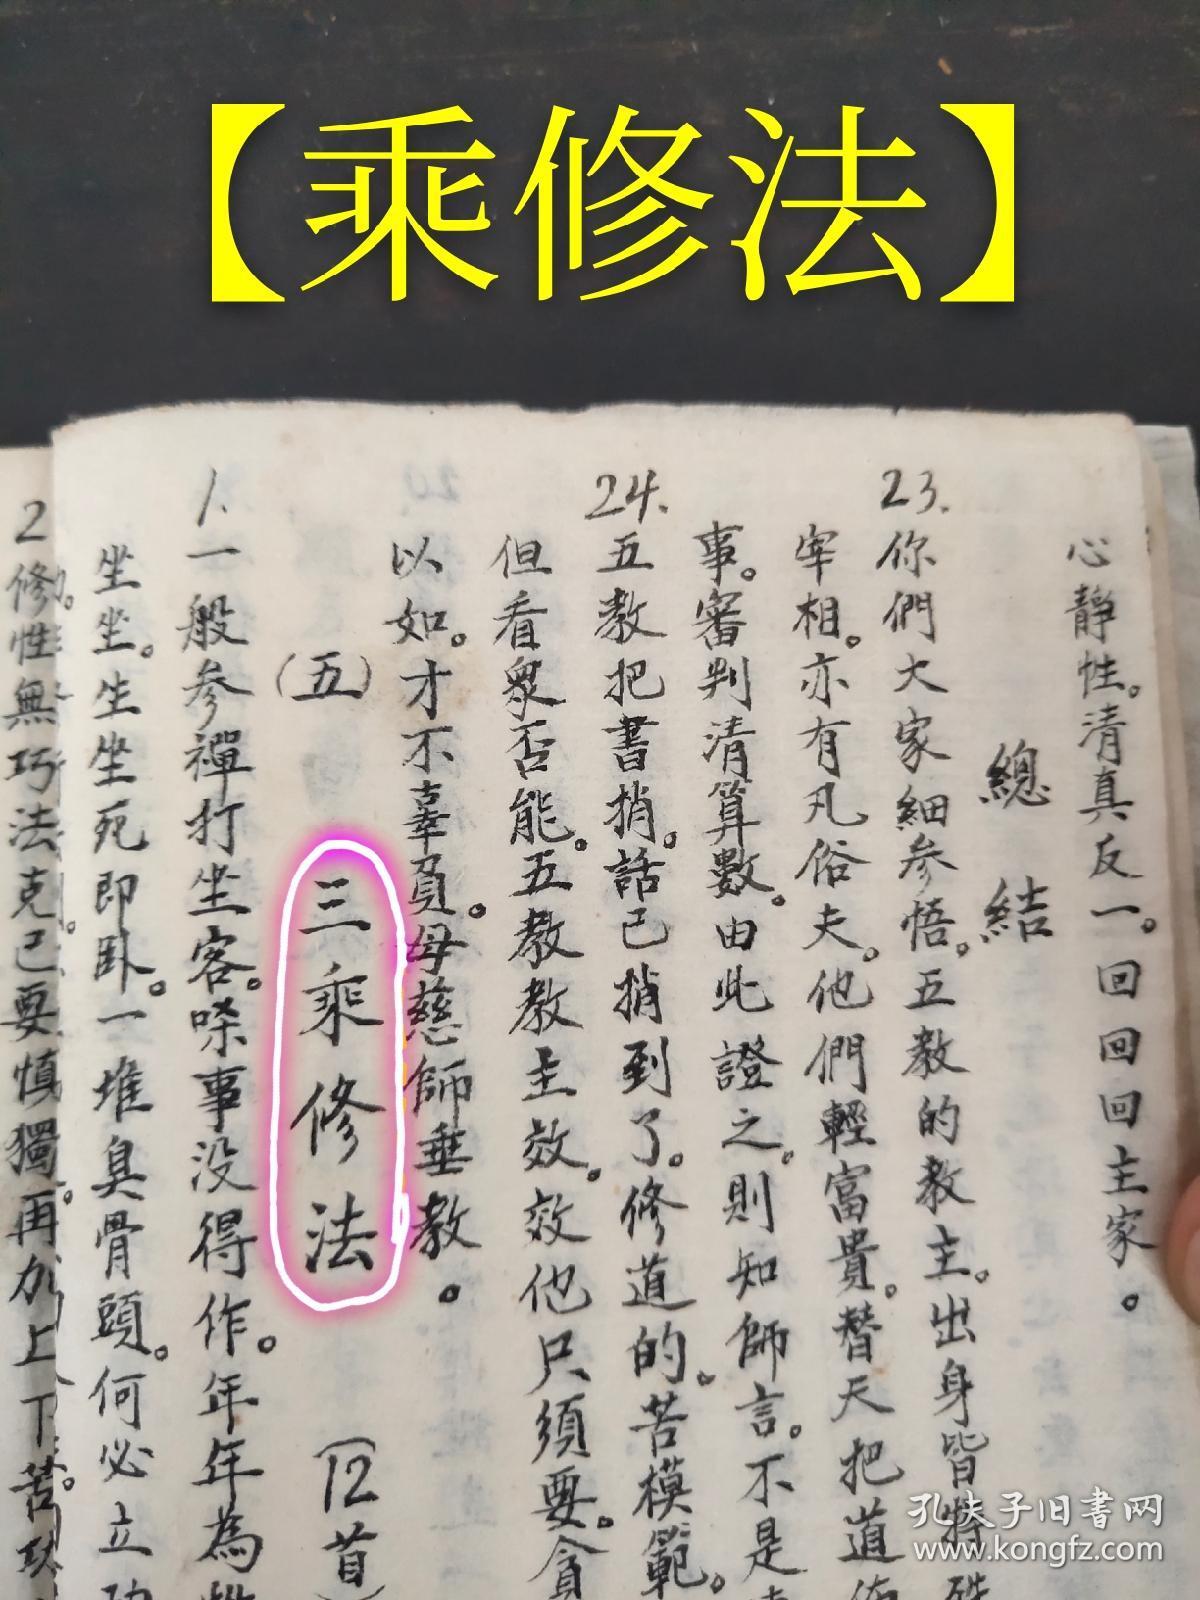 【乘修法】
心靜性。清真反一。回回回主家。
總結
23.你們大家細参悟。五教的教主。出身皆特
宰相。亦有凡俗夫。他們輕富貴。替天把道
事。審判清算數。由此證之。則知師言。不是
24.五教把書捎。話已捎到了。修道的。苦模範。
但看衆否能。五教教主效。效他只須要。貪
以如。才不辜負。母慈師垂教。
(五) 三乘修法 (12首)
1.一般参禪打坐客。嗦事没得作。年年為
坐坐。生坐死即卧。一堆臭骨頭。何必立功
2修性無巧法克己要慎獨。再加上下苦功
孔夫子旧书网
www.kongfz.com